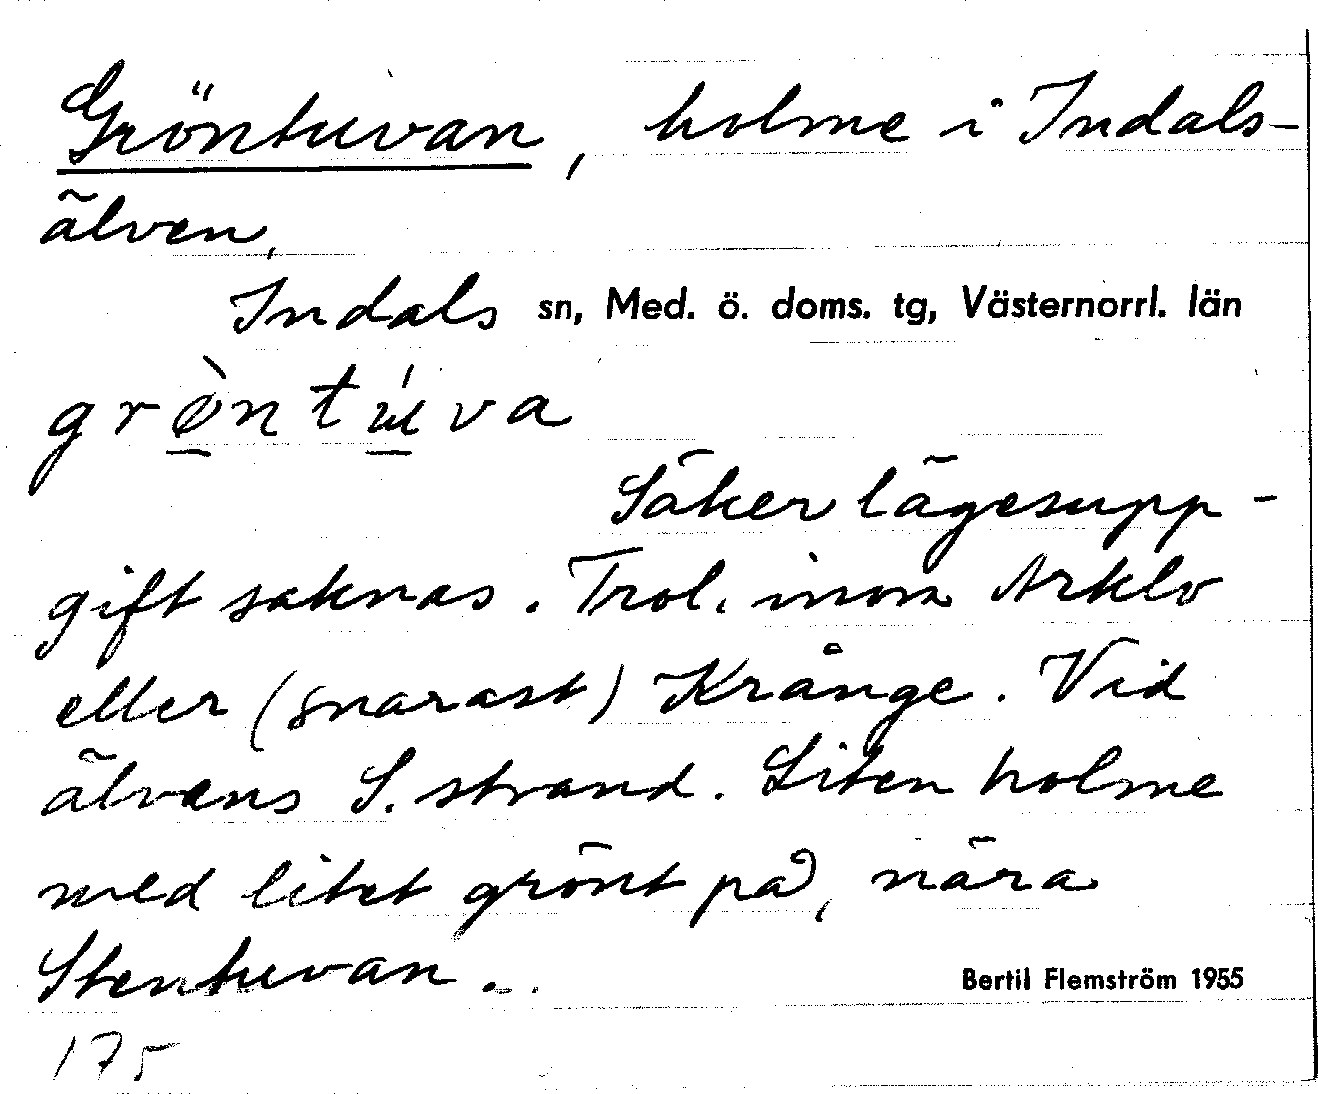 Gröntuvan, holme i Indals-
älven.
Indals sn, Med. ö. doms. tg, Västernorrl. län
grø̀ntúva
Säker lägesupp-
gift saknas. Trol. inom Arklo
eller (snarast) Krånge. Vid
älvens S. strand. Liten holme
med litet grönt på, nära
Stentuvan.
Bertil Flemström 1955
175